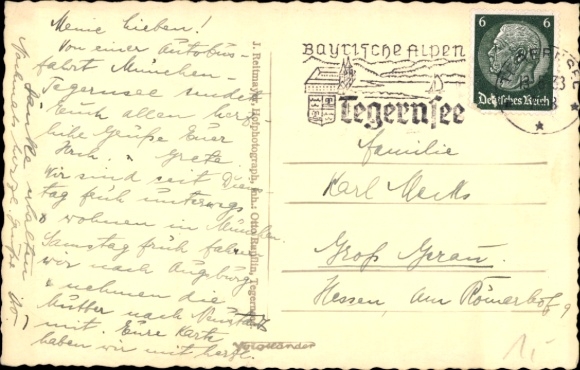 Meine Lieben!
Von einer Autobus-
fahrt München-
Tegernsee sendet
Euch allen herz-
liche Grüße Euer
Grete
Wir sind seit Diens-
tag früh unterwegs
& wohnen in München.
Samstag früh fahren
wir nach Augsburg
& nehmen die
Mutter nach
mit. Eure Karte
haben wir mit herzl.
Danke erhalten
Nochmals herzl. Grüße
J. Reitmayer, Hofphotograph, Inh.: Otto Tegernsee
Bayrische Alpen
Tegernsee
6 6
Deutsches Reich
33
Familie
Karl
Groß Gerau.
Hessen, am Römerhof 9
Voigtländer
1,-